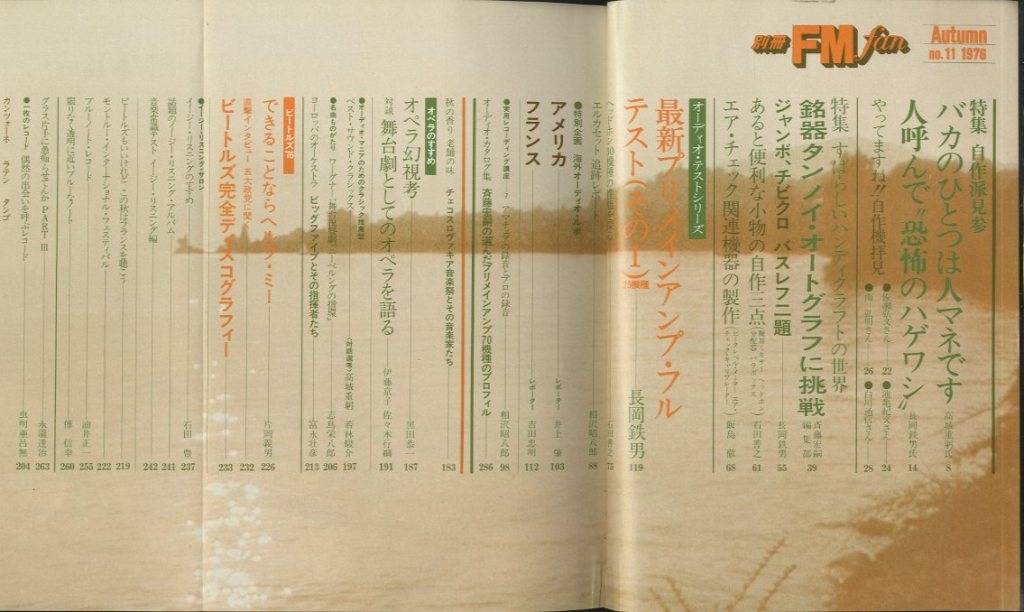 別冊 FM fan
Autumn
no.11 1976
特集 自作派見参
バカのひとつは人マネです 高城重躬氏 8
人呼んで“恐怖のハゲワシ” 長岡鉄男氏 14
やってますね!!自作機拝見
22
24
26
28
特集 すばらしいハンディクラフトの世界
銘器タンノイ・オートグラフに挑戦 斎藤宏嗣 編集部 39
ジャンボ、チビクロ バスレフ二題 長岡鉄男 55
あると便利な小物の自作三点 石田善之 61
エア・チェック関連機器の製作 飯島 徹 68
オーディオ・テストシリーズ
最新プリメインアンプ・フルテスト(その1) 25機種 長岡鉄男 119
75
エルカセット 追跡レポート 相沢昭八郎 88
●特別企画 海外オーディオ・ルポ
アメリカ レポーター 井上 肇 103
フランス レポーター 吉田忠明 112
●実用レコーディング講座・7 アマチュアの録音とプロの録音 相沢昭八郎 98
オーディオ・カタログ集 斎藤宏嗣の選んだプリメインアンプ70機種のプロフィル 286
秋の香り 老舗の味 チェコスロヴァキア音楽祭とその音楽家たち 183
オペラのすすめ
オペラ幻視考 黒田恭一 187
対談 舞台劇としてのオペラを語る 伊藤京子 佐々木行綱 191
●オーディオ・マニアのためのクラシック推薦盤
ベスト・サウンド・クラシックス 〈対話選考〉高城重躬 若林駿介 197
●名曲ものがたり ワーグナー「舞台祝祭劇 ニーベルングの指環」 志鳥栄八郎 206
ヨーロッパのオーケストラ ビッグファイブとその指揮者たち 富永壮彦 213
ビートルズ'76
できることならヘルプ・ミー 片岡義男 226
直撃インタビュー 五大政党に聞く 232
ビートルズ完全ディスコグラフィー 233
●イージー・リスニング・サロン
イージー・リスニングのすすめ 石田 豊 237
話題のイージー・リスニング・アルバム 241
音楽常識テスト イージー・リスニング編 242
ビートルズもいいけれど この秋はフランスを聴こう 219
モントルー・インターナショナル・フェスティバル 222
ブルーノート・レコード 油井正一 255
限りなく透明に近いブルーなノート 傅 信幸 260
グラス片手に愚痴らせてくれ PART III 永瀧達治 263
●一枚のレコード 偶然の出会いを呼ぶレコード 虫明亜呂無 204
カンツォーネ ラテン タンゴ